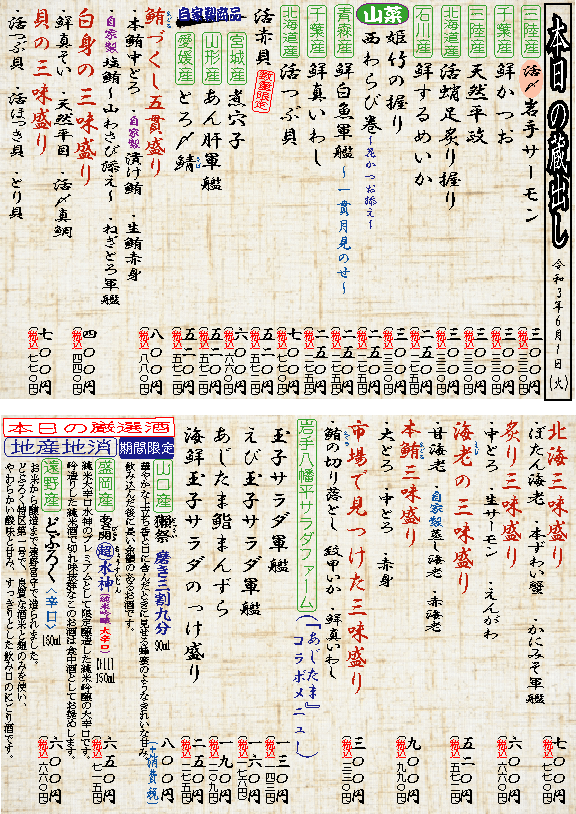 本日の蔵出し 令和3年6月1日(火)
三陸産 活〆岩手サーモン 三〇〇円 (税込 三三〇円)
千葉産 鮮かつお 三〇〇円 (税込 三三〇円)
三陸産 天然平政 三〇〇円 (税込 三三〇円)
北海道産 活蛸足炙り握り 三〇〇円 (税込 三三〇円)
石川産 鮮するめいか 二五〇円 (税込 二七五円)
姫竹の握り 三〇〇円 (税込 三三〇円)
山菜 西わらび巻~花かつお添え~
青森産 鮮白魚軍艦~一貫月見のせ~ 二五〇円 (税込 二七五円)
千葉産 鮮真いわし 二五〇円 (税込 二七五円)
北海道産 活つぶ貝 七〇〇円 (税込 七七〇円)
活赤貝 数量限定 五二〇円 (税込 五七二円)
自家製商品
宮城産 煮穴子 六〇〇円 (税込 六六〇円)
山形産 あん肝軍艦 五二〇円 (税込 五七二円)
愛媛産 とろ〆鯖 五二〇円 (税込 五七二円)
鮪づくし五貫盛り 八〇〇円 (税込 八八〇円)
・本鮪中とろ ・自家製漬け鮪 ・生鮪赤身
自家製塩鮪~山わさび添え~ ・ねぎとろ軍艦
白身の三味盛り 四〇〇円 (税込 四四〇円)
・鮮真そい ・天然平目 ・活〆真鯛
貝の三味盛り 七〇〇円 (税込 七七〇円)
・活つぶ貝 ・活ほっき貝 ・とり貝
北海三味盛り 七〇〇円 (税込 七七〇円)
ぼたん海老 ・本ずわい蟹 ・かにみそ軍艦
炙り三味盛り 六〇〇円 (税込 六六〇円)
・中とろ ・生サーモン ・えんがわ
海老の三味盛り 五二〇円 (税込 五七二円)
・甘海老 ・自家製蒸し海老 ・赤海老
本鮪三味盛り 九〇〇円 (税込 九九〇円)
・大とろ ・中とろ ・赤身
市場で見つけた三味盛り 三〇〇円 (税込 三三〇円)
鮪の切り落とし 紋甲いか ・鮮真いわし
岩手八幡平サラダファーム (『あじたま』コラボメニュー)
玉子サラダ軍艦 一三〇円 (税込 一四三円)
えび玉子サラダ軍艦 一六〇円 (税込 一七六円)
あじたま鮨まんずら 一九〇円 (税込 二〇九円)
海鮮玉子サラダのっけ盛り 二五〇円 (税込 二七五円)
本日の厳選酒
地産地消 期間限定
山口産 獺祭 磨き三割九分 90ml 八〇〇円 (税込 八八〇円)
華やかな上立ち香と口に含んだときに見せる蜂蜜のようなきれいな甘み、
飲み込んだ後に長い余韻のあるお酒です。
盛岡産 雪間 超 水神 (純米吟醸 大辛口) 150ml 六五〇円 (税込 七一五円)
純米大辛口水神のプレミアムとして限定醸造した純米吟醸の大辛口です。
吟造りした純米酒で切れ味抜群なこのお酒は食中酒としてお薦めします。
遠野産 どぶろく〈辛口〉 150ml 六〇〇円 (税込 六六〇円)
お米から醸造まで遠野宮守で造られました。
どぶろく特区第一号で、良質な酒米と麹のみを使い、
やわらかい酸味と甘み、すっきりとした飲み口のにごり酒です。